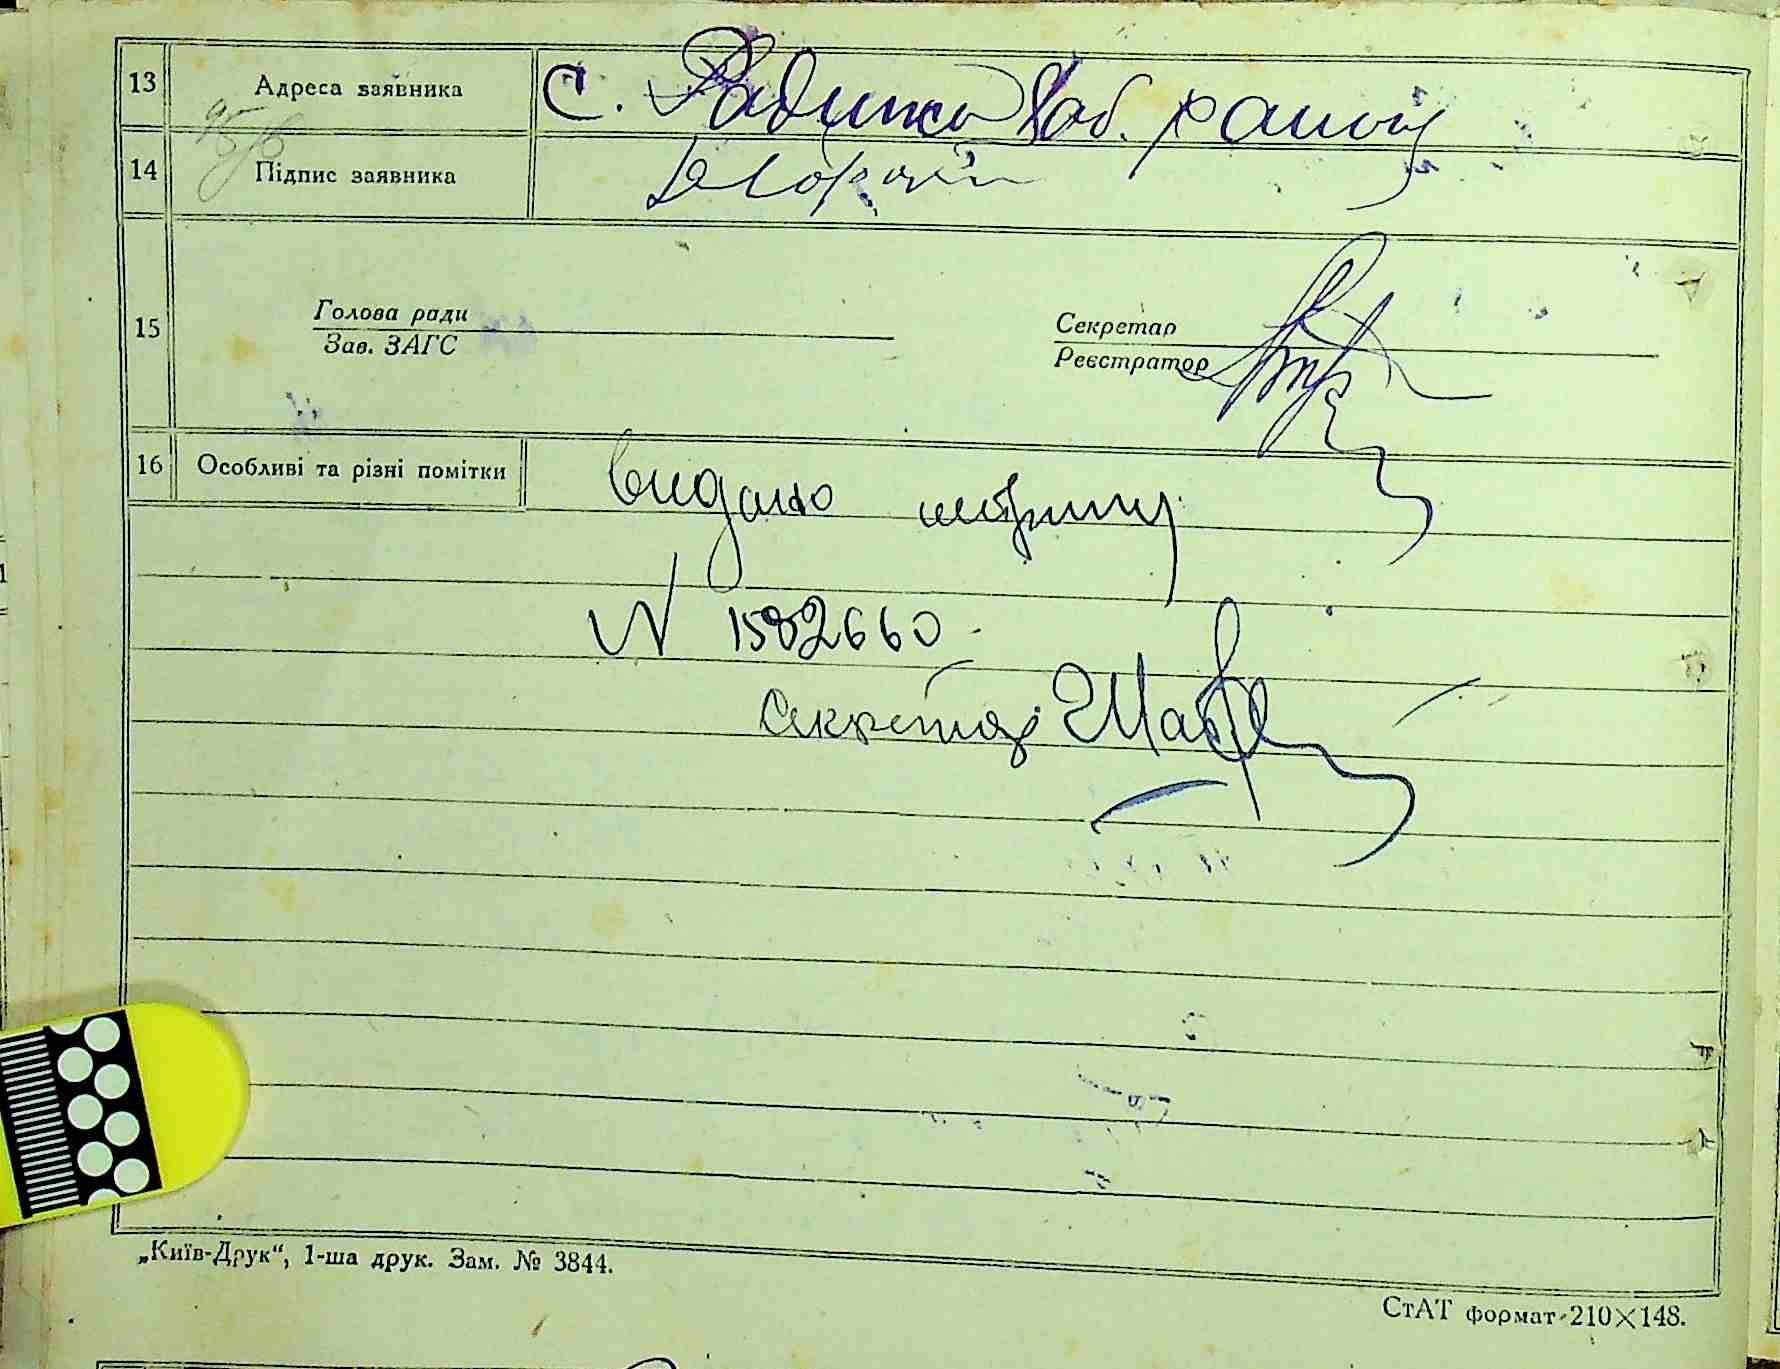 13 Адреса заявника с. Радинка Хаб. району
14 Підпис заявника
15 Голова ради
Зав. ЗАГС
Секретар
Реєстратор
16 Особливі та різні помітки видано метрику
N 1582660
Секретар
„Київ-Друк“, 1-ша друк. Зам. № 3844.
СтАТ формат 210×148.